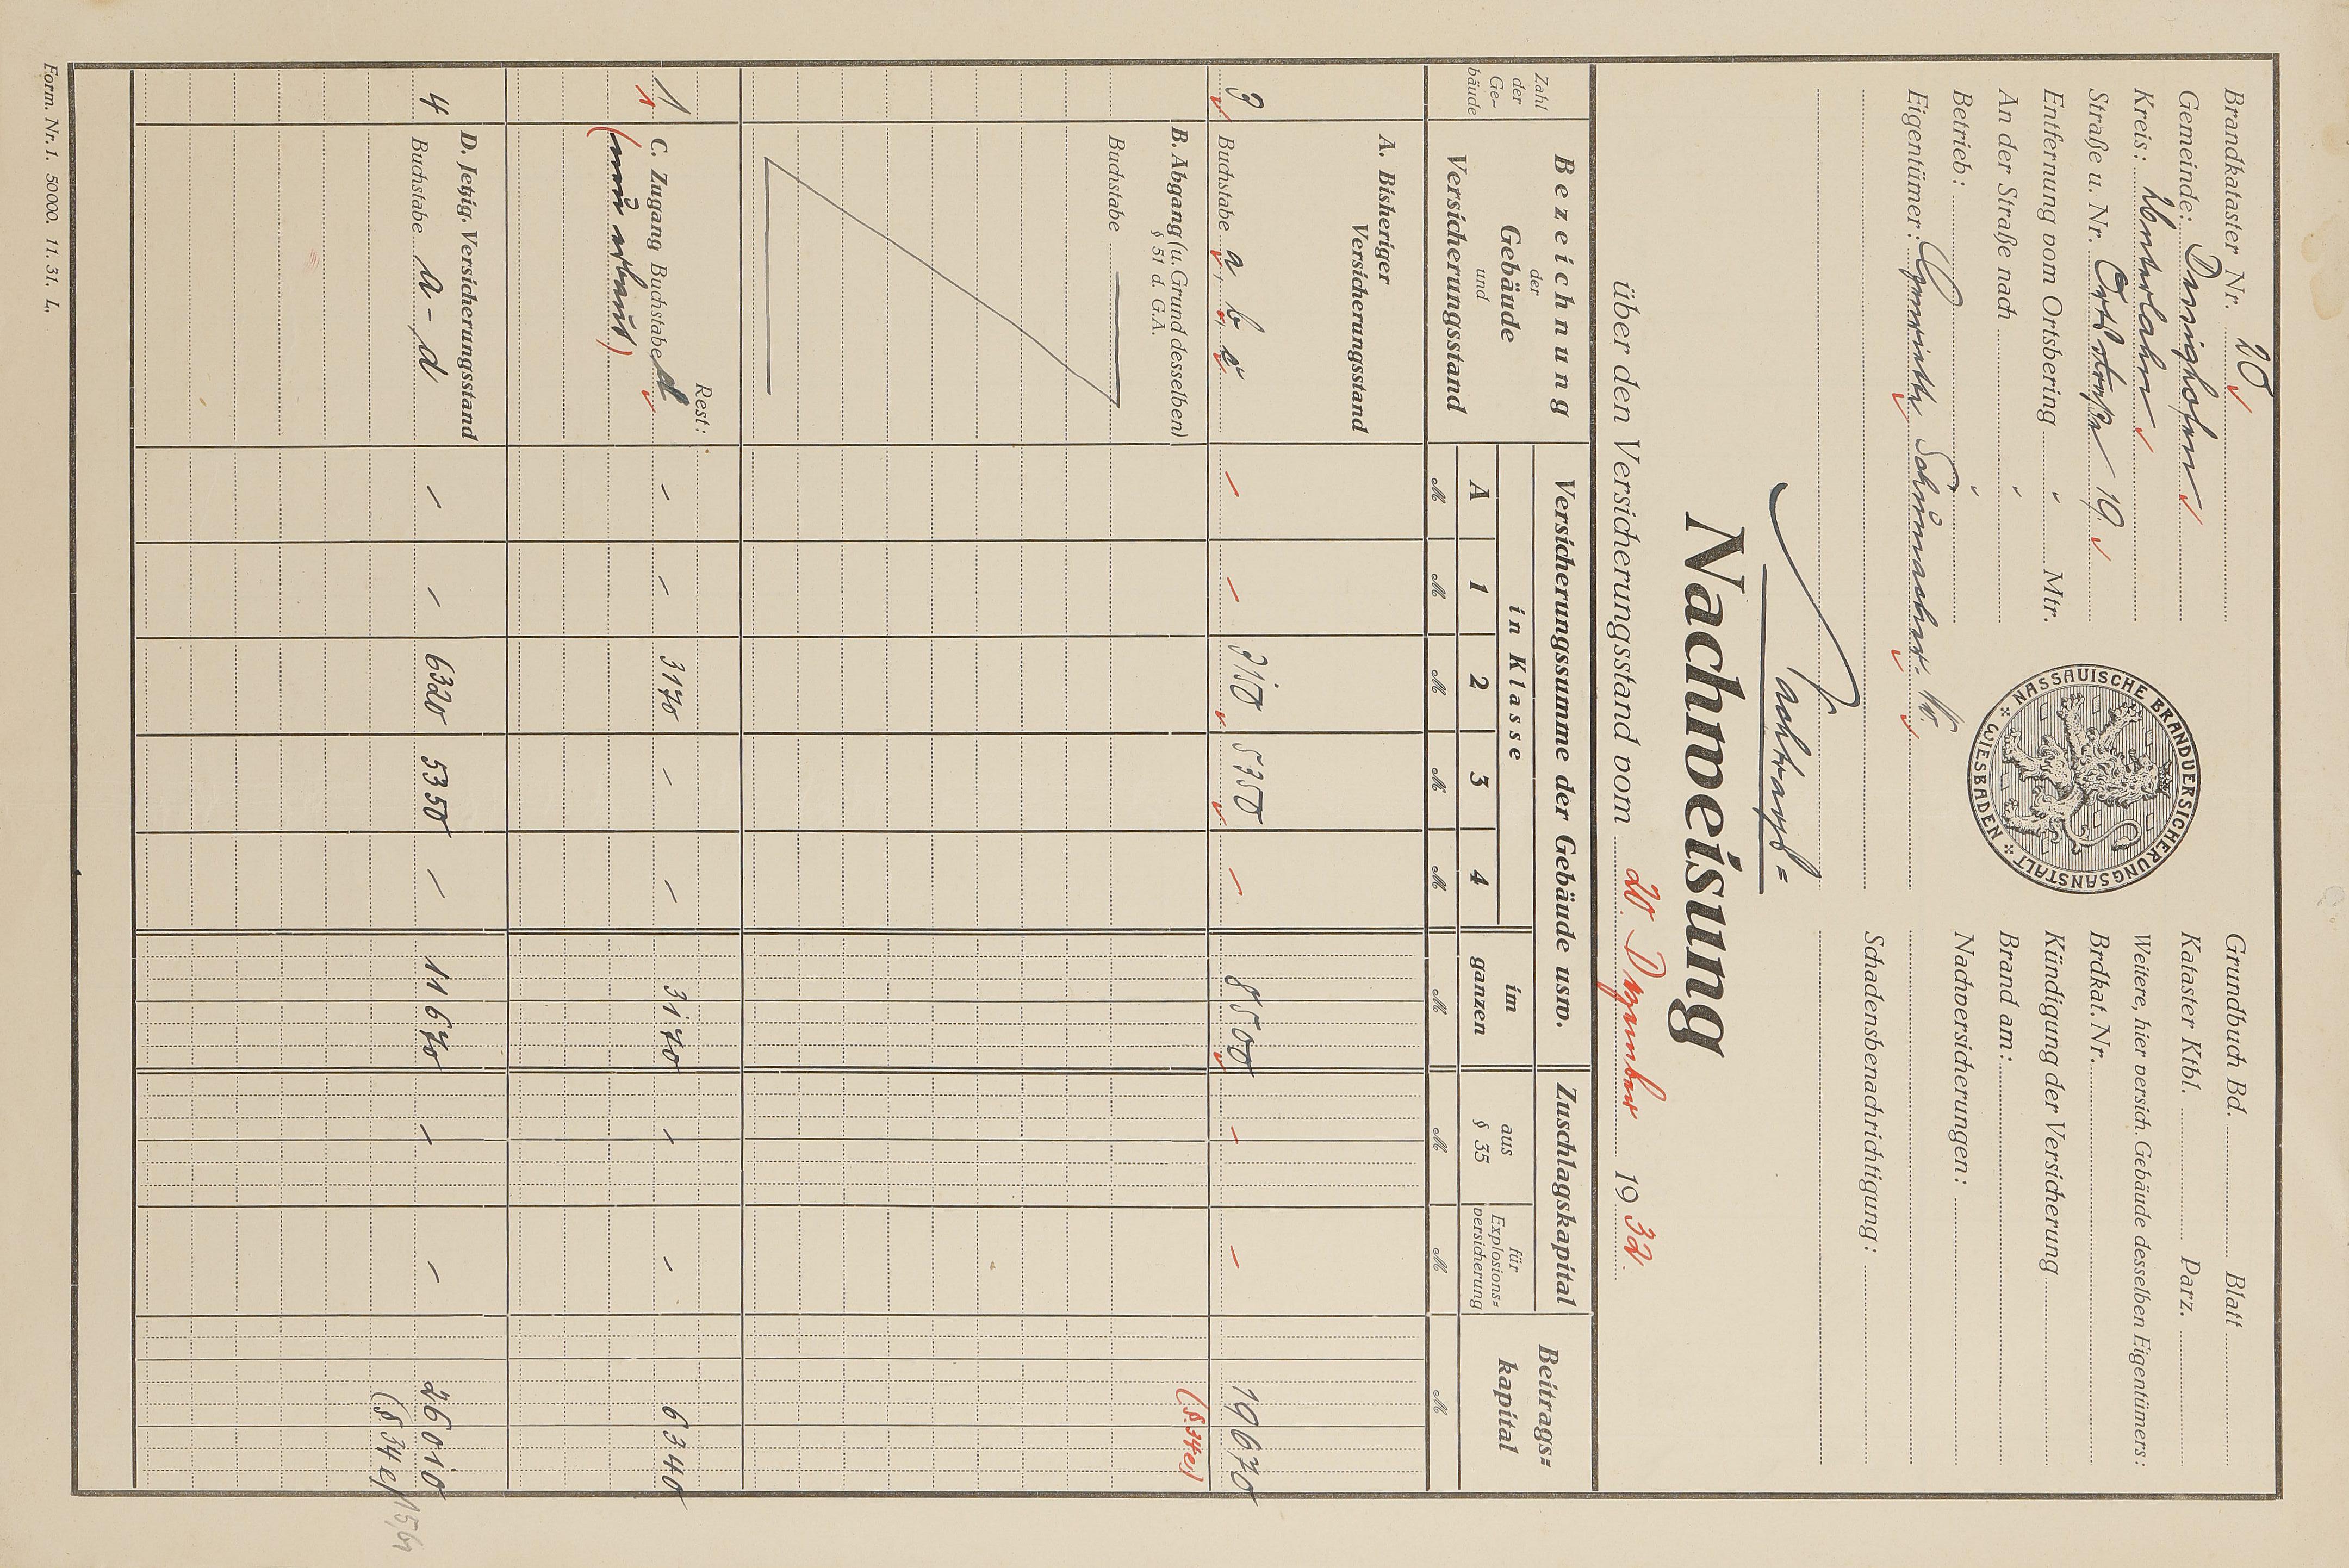 Brandkataster Nr. 20
Gemeinde: Dausighofen
Kreis: Unterlahn
Straße u. Nr. Ortsstraße 19.
Entfernung vom Ortsbering " Mtr.
An der Straße nach "
Betrieb: "
Eigentümer: Schumacher
NASSAUISCHE BRANDVERSICHERUNGSANSTALT
WIESBADEN
Grundbuch Bd. Blatt
Kataster Ktbl. Parz.
Weitere, hier versich. Gebäude desselben Eigentümers:
Brdkat. Nr.
Kündigung der Versicherung
Brand am:
Nachversicherungen:
Schadensbenachrichtigung:
Nachtrags=
Nachweisung
über den Versicherungsstand vom 20. Dezember 1932.
Zahl der Ge-bäude
Bezeichnung der Gebäude und Versicherungsstand
Versicherungssumme der Gebäude usw.
in Klasse
A 1 2 3 4
im ganzen
Zuschlagskapital
aus § 35
für Explosions=versicherung
Beitrags=kapital
M M M M M M M M M
A. Bisheriger Versicherungsstand
3 Buchstabe a, b, c – – 3150 5350 – 8500 – – 19670
(§ 34e)
B. Abgang (u. Grund desselben)
§ 51 d. G.A.
Buchstabe —
Rest:
1 C. Zugang Buchstabe d – – 3170 – – 3170 – – 6340
(neu erbaut)
D. Jetzig. Versicherungsstand
4 Buchstabe a - d – – 6320 5350 – 11670 – – 26010
(§ 34e)
Form. Nr. 1. 50000. 11. 31. L.